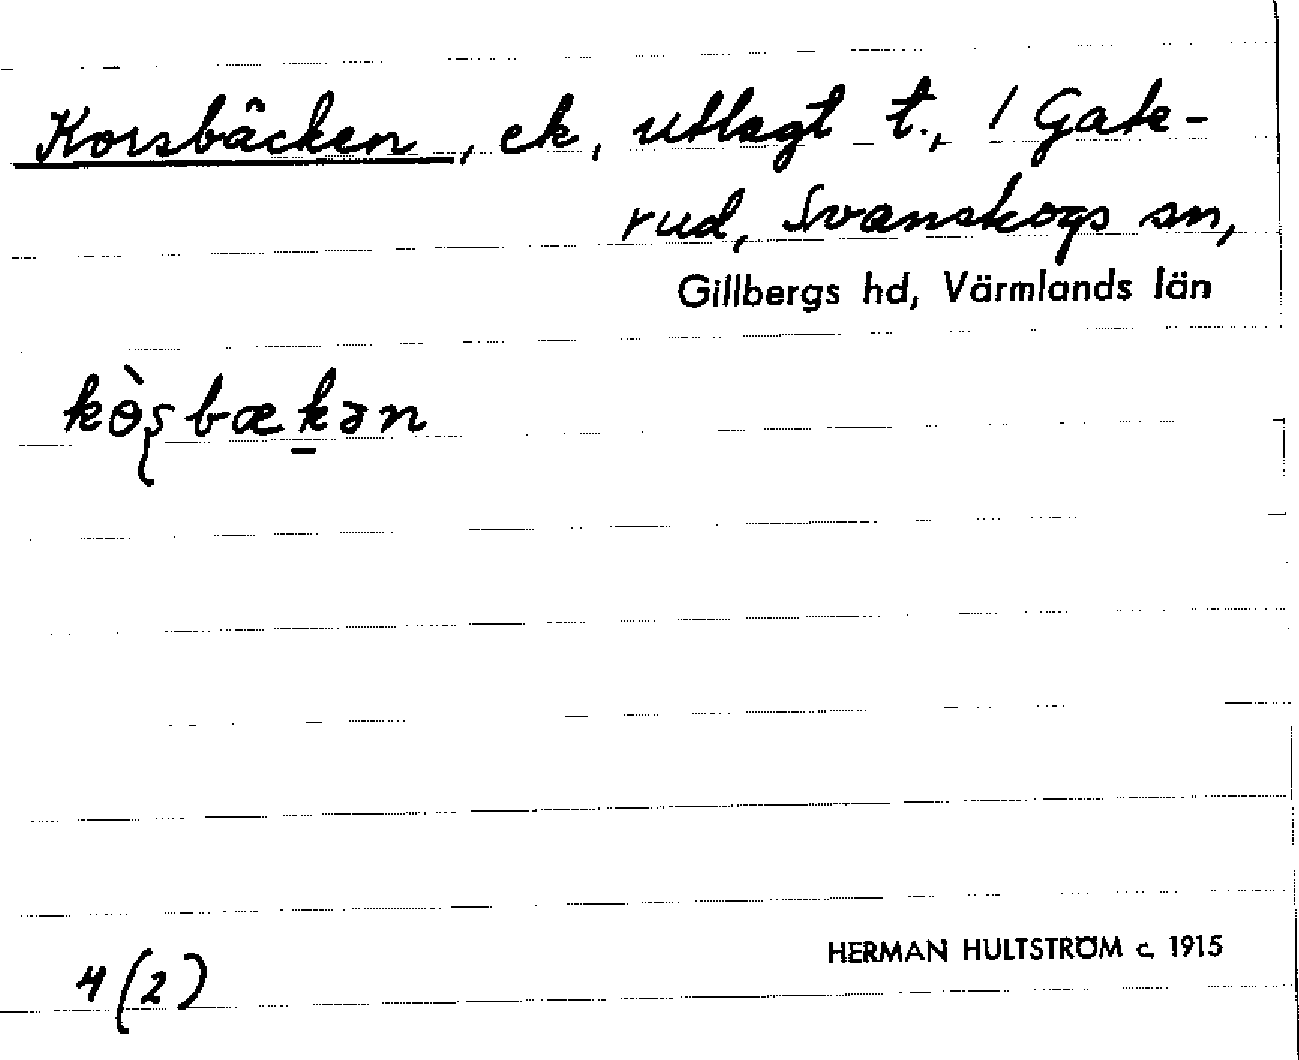 Korsbäcken, ek, utlagt t., 1 Gate-
rud, Svanskogs sn,
Gillbergs hd, Värmlands län
kɵ̀ʂbæk̠ən
4 (2)
HERMAN HULTSTRÖM c. 1915